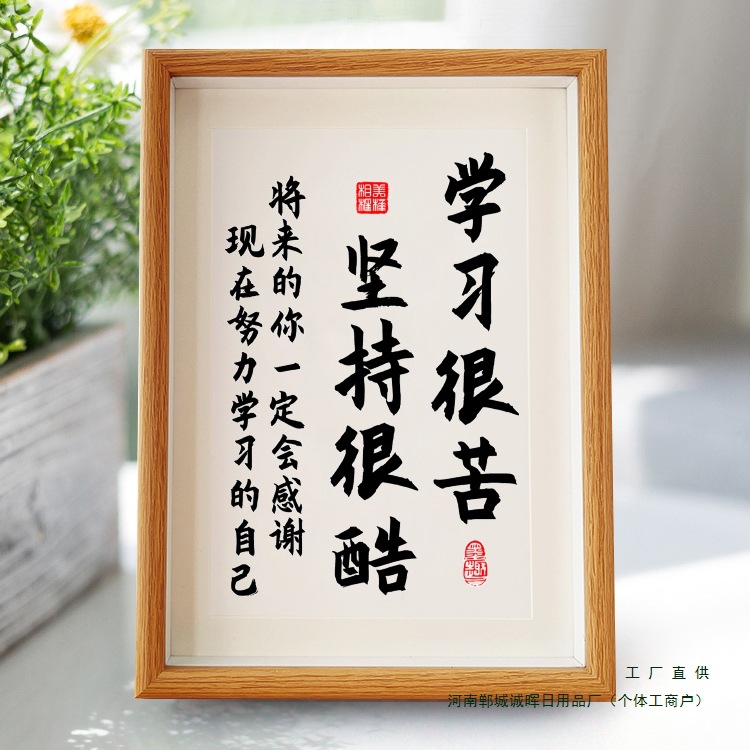 学习很苦
坚持很酷
将来的你一定会感谢
现在努力学习的自己
工厂直供
河南郸城诚晖日用品厂（个体工商户）